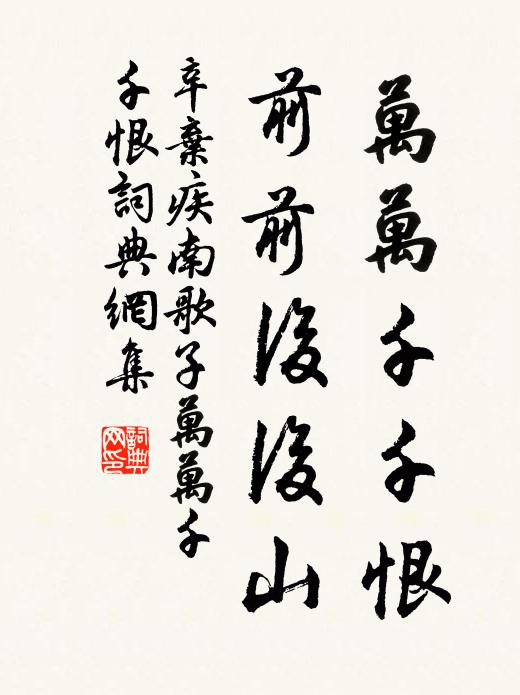 萬萬千千恨
前前後後山
辛棄疾南歌子萬萬千
千恨詞典網集
詞典网印